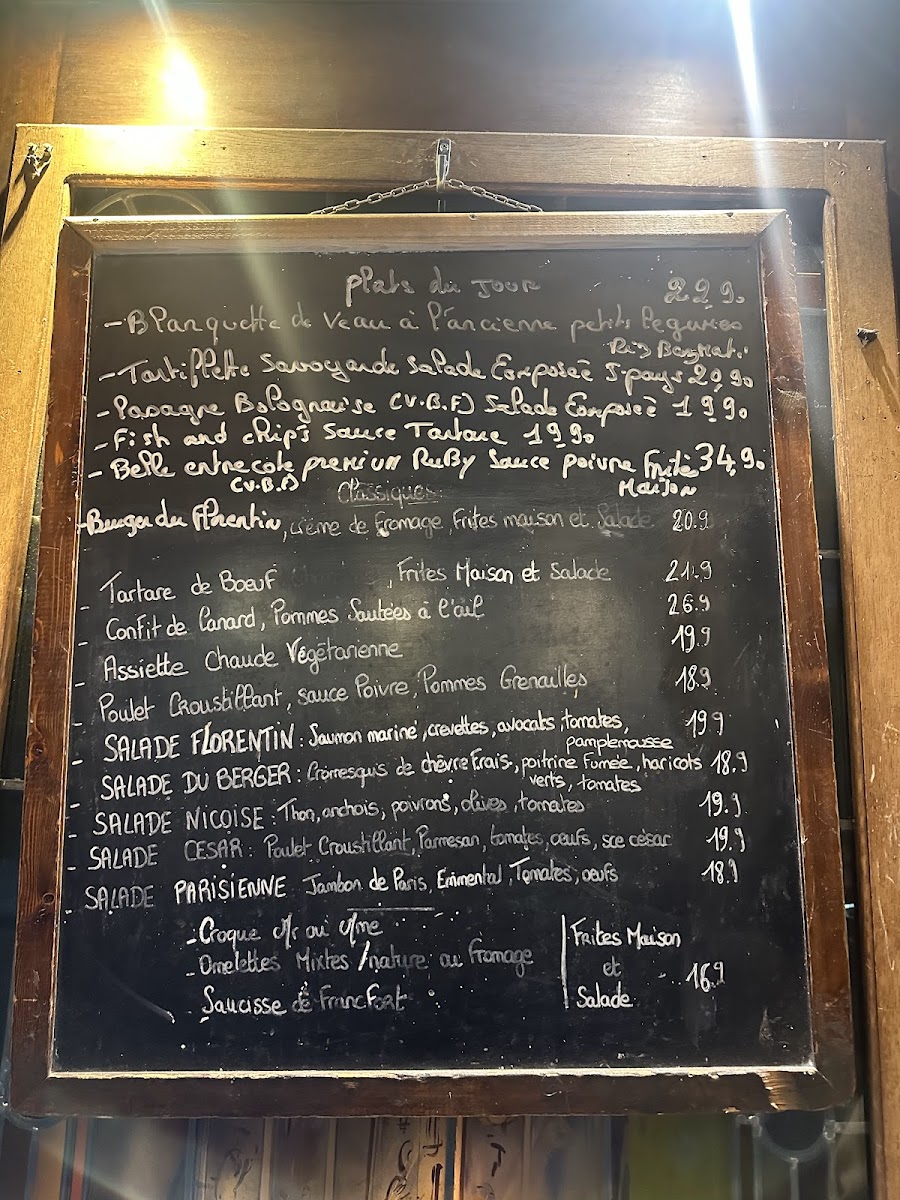 Plats du JOUR 22 9.
- Blanquette de veau à l'ancienne petits legumes
Riz Basmati.
- Tartiflette Savoyarde Salade Composée 20,90
- Lasagne Bolognaise (V.B.F) Salade Composée 19 90
- Fish and chips Sauce Tartare 19 90
- Belle entrecote premium RuBy Sauce poivre Frite 34,90
(V.B.F) MaiSon
Classiques
- Burger du Florentin, crème de Fromage, Frites maison et Salade 20.9
- Tartare de Boeuf , Frites Maison et Salade 21.9
- Confit de Canard, Pommes Sautées à l'ail 26.9
- Assiette Chaude Végétarienne 19.9
- Poulet Croustillant, sauce Poivre, Pommes Grenailles 18.9
- SALADE FLORENTIN : Saumon mariné, crevettes, avocats, tomates, 19 9
pamplemousse
- SALADE DU BERGER : Cromesquis de chèvre Frais, poitrine Fumée, haricots 18.9
verts, tomates
- SALADE NICOISE : Thon, anchois, poivrons, olives, tomates 19.9
- SALADE CESAR : Poulet Croustillant, Parmesan, tomates, oeufs, sce césar 19.9
- SALADE PARISIENNE Jambon de Paris, Emmental, Tomates, oeufs 18.9
- Croque Mr ou Mme
- Omelettes Mixtes / nature ou Fromage
Saucisse de Francfort
Frites Maison
et
Salade 16.9